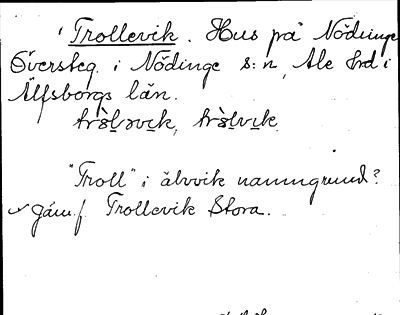 Trollevik. Hus på Nödinge
Översteg. i Nödinge s:n, Ale hd i
Älfsborgs län.
tròl̥əvɪk, tròl̥vɪk.
"Troll" i älvvik namngrund?
Jäm.f. Trollevik Stora.